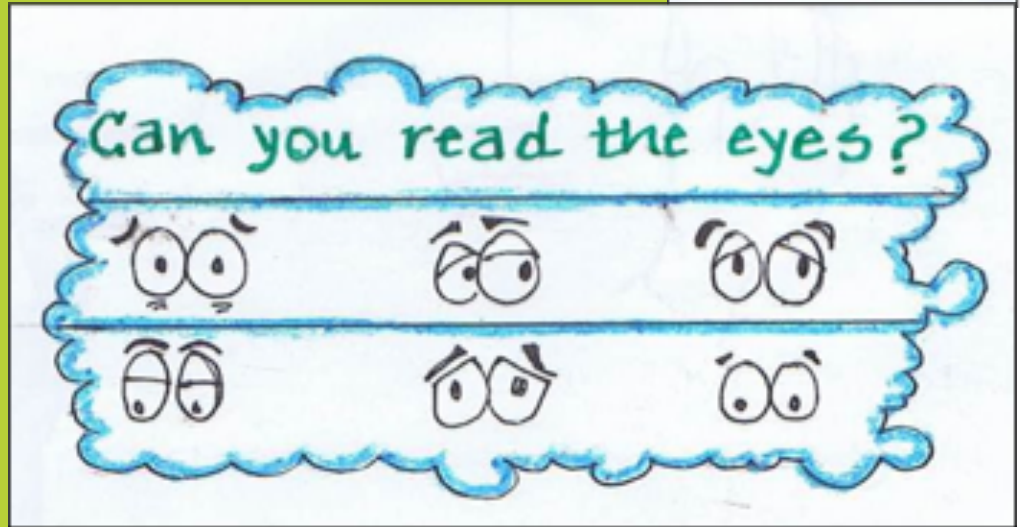 Can you read the eyes?